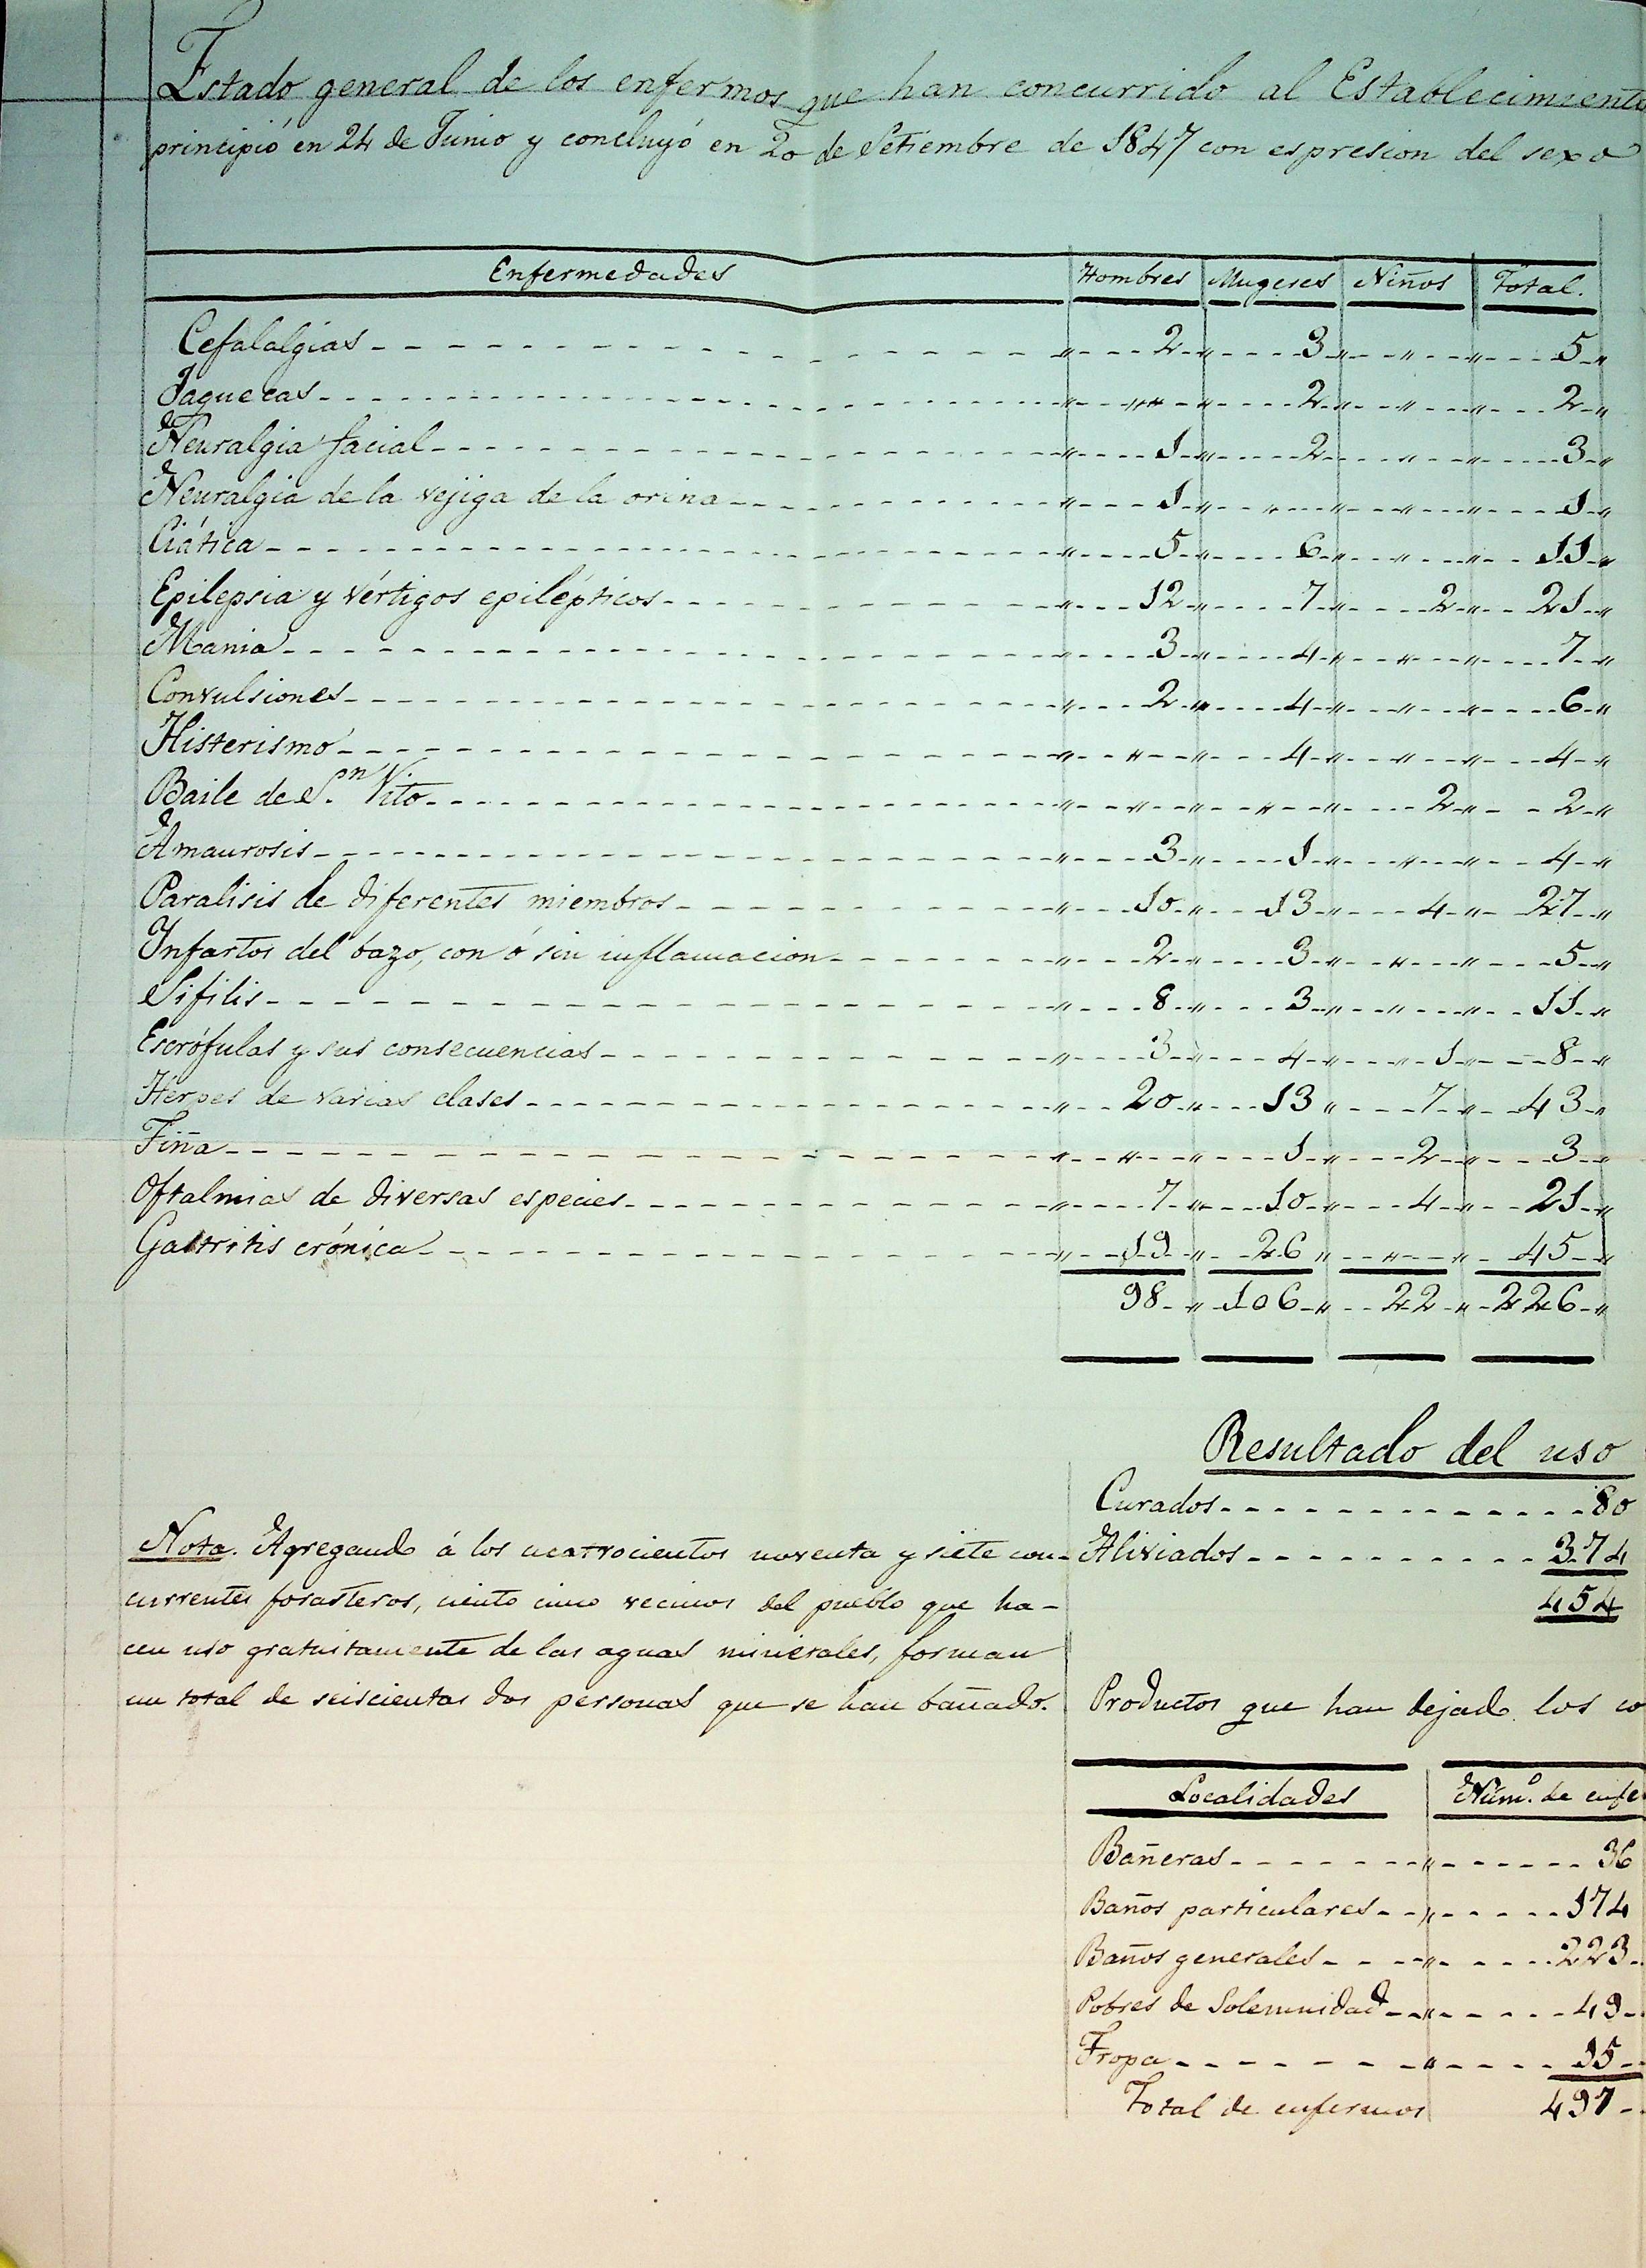 Estado general de los enfermos que han concurrido al Establecimiento
principió en 24 de Junio y concluyó en 20 de Setiembre de 1847 con espresion del sexo
Enfermedades Hombres Mugeres Niños Total.
Cefalalgias 2 " 3 " " " 5 "
Jaquecas " " 2 " " " 2 "
Neuralgia facial 1 " 2 " " 3 "
Neuralgia de la vejiga de la orina 1 " " " " " 1 "
Ciática 5 " 6 " " " 11 "
Epilepsia y vértigos epilépticos 12 " 7 " 2 " 21 "
Mania 3 " 4 " " " 7 "
Convulsiones 2 " 4 " " " 6 "
Histerismo " " 4 " " " 4 "
Baile de S.n Vito " " " " 2 " 2 "
Amaurosis 3 " 1 " " " 4 "
Paralisis de diferentes miembros 10 " 13 " 4 " 27 "
Infartos del bazo, con ó sin inflamacion 2 " 3 " " " 5 "
Sifilis 8 " 3 " " " 11 "
Escrófulas y sus consecuencias 3 " 4 " 1 " 8 "
Herpes de varias clases 20 " 13 " 7 " 43 "
Tiña " " 1 " 2 " 3 "
Oftalmias de diversas especies 7 " 10 " 4 " 21 "
Gastritis crónica 19 " 26 " " " 45 "
98 " 106 " 22 " 226 "
Resultado del uso
Curados 80
Aliviados 374
454
Nota. Agregando á los cuatrocientos noventa y siete con-
currentes forasteros, ciento cinco vecinos del pueblo que ha-
cen uso gratuitamente de las aguas minerales, forman
un total de seiscientas dos personas que se han bañado.
Productos que han dejado los co
Localidades Núm.o de enfe
Bañeras 36
Baños particulares 174
Baños generales 223
Pobres de Solemnidad 49
Tropa 15
Total de enfermos 497